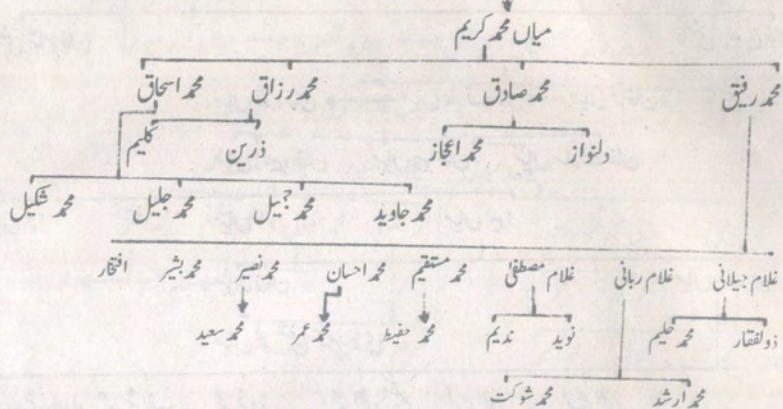 میاں محمد کریم
محمد رفیق محمد صادق محمد رزاق محمد اسحاق
دلنواز محمد اعجاز ذرین کلیم
محمد جاوید محمد جمیل محمد جلیل محمد شکیل
غلام جیلانی غلام ربانی غلام مصطفیٰ محمد مستقیم محمد احسان محمد نصیر محمد بشیر افتخار
ذولفقار محمد حلیم نوید ندیم محمد حفیظ محمد عمر محمد سعید
محمد ارشد محمد شوکت